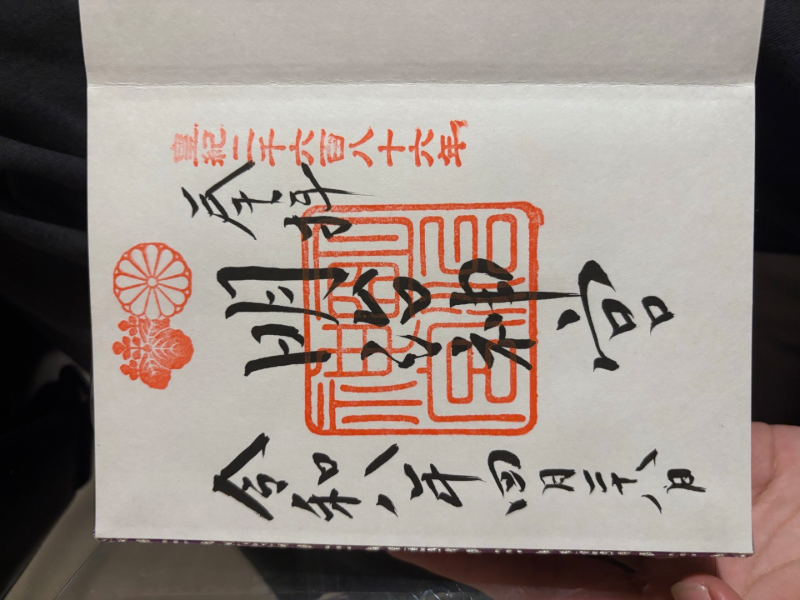 皇紀二千六百八十六年
奉拝
明治神宮
明治神宮
令和八年四月二十八日